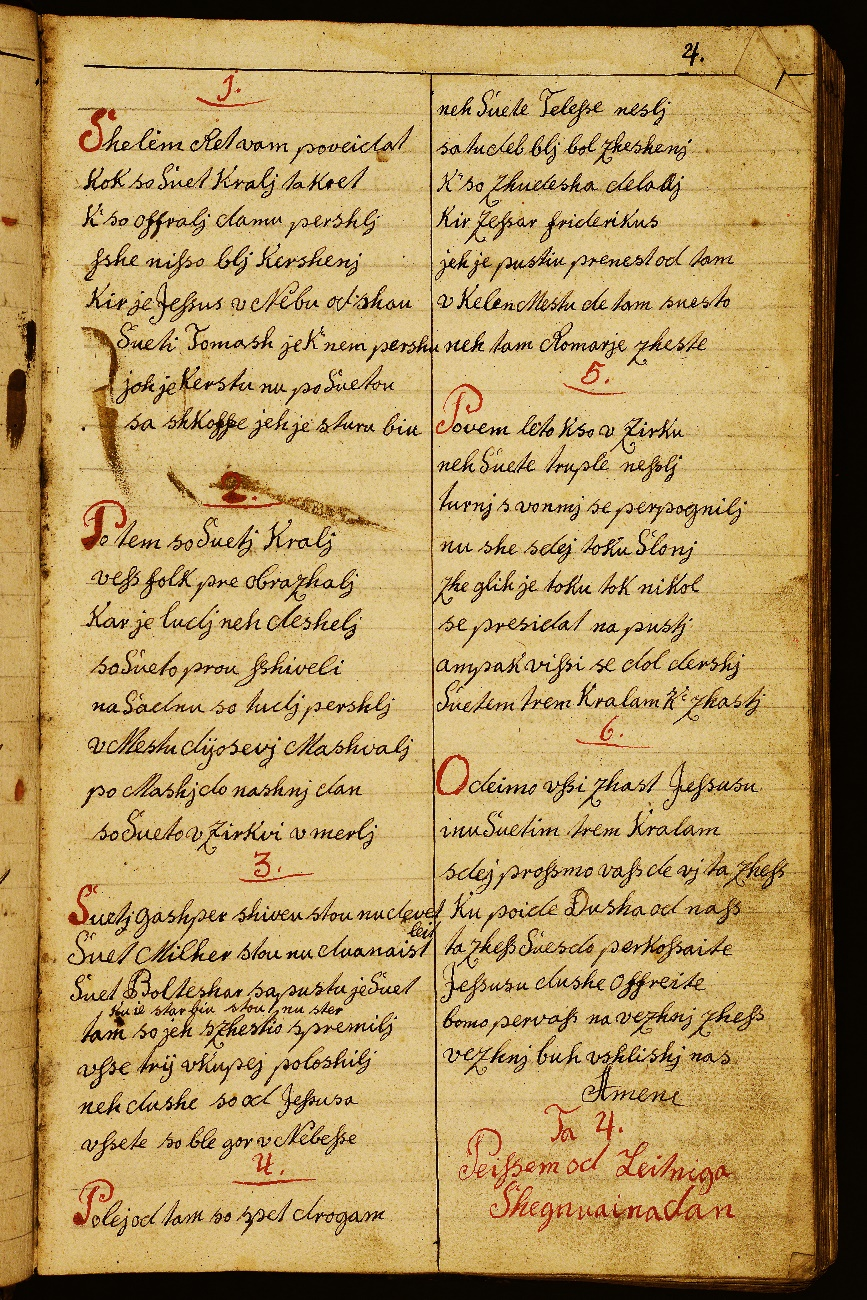 4.
1.
Shelèm Ret vam poveidat
Kok so Suet Kralj ta kret
K' so offralj damu pershlj
sshe nisso blj Kershenj
Kir je Jessus v Nèbu od shau
Sueti Tomash je K' nem pershu
joh je Kerstu nu po Suetou
sa shkoffe jeh je sturu biu
2.
Potem so Suetj Kralj
vess folk pre obrazhalj
Kar je ludj neh deshelj
so Sueto prou sshiveli
na Sadnu so tudj pershlj
v Mestu dijosevj Mashvalj
po Mashj do nashnj dan
so Sueto v Zirkvi v merlj
3.
Suetj gashper shiveu stou nu devet
leit
Suet Milher stou nu duanaist
Suet Bolteshar sa pustu je Suet
ku ie star biu stou nu ster
tam so jeh szhestio spremilj
vsse trij vkupej poloshilj
neh dushe so od Jessusa
vssete so ble gor v Nebesse
4.
Polej od tam so spet drogam
neh Suete Telesse neslj
sa tudeb blj bol zheshenj
K' so zhudesha delalj
Kir Zessar friderikus
jeh je pustiu prenest od tam
v Kelen Mestu de tam suesto
neh tam Romarje zheste
5.
Povem leto K so v Zirku
neh Suete truple nesslj
turnj s vonmj se perpognilj
nu she sdej toku Slonj
zhe glih je toku tok nikol
se presidat na pustj
ampak vissi se dol dershj
Suetem trem Kralam K' zhastj
6.
Odeimo vssi zhast Jessusu
inu Suetim trem Kralam
sdej prossmo vass de vj ta zhess
Ku poide Dusha od nass
ta zhess Suesdo perkossaite
Jessusu dushe Offreite
bomo per vass na vezhnj zhess
vezhnj buh vshlishj nas
Amene
Ta 4.
Peissem od Leitniga
Shegnuaina dan